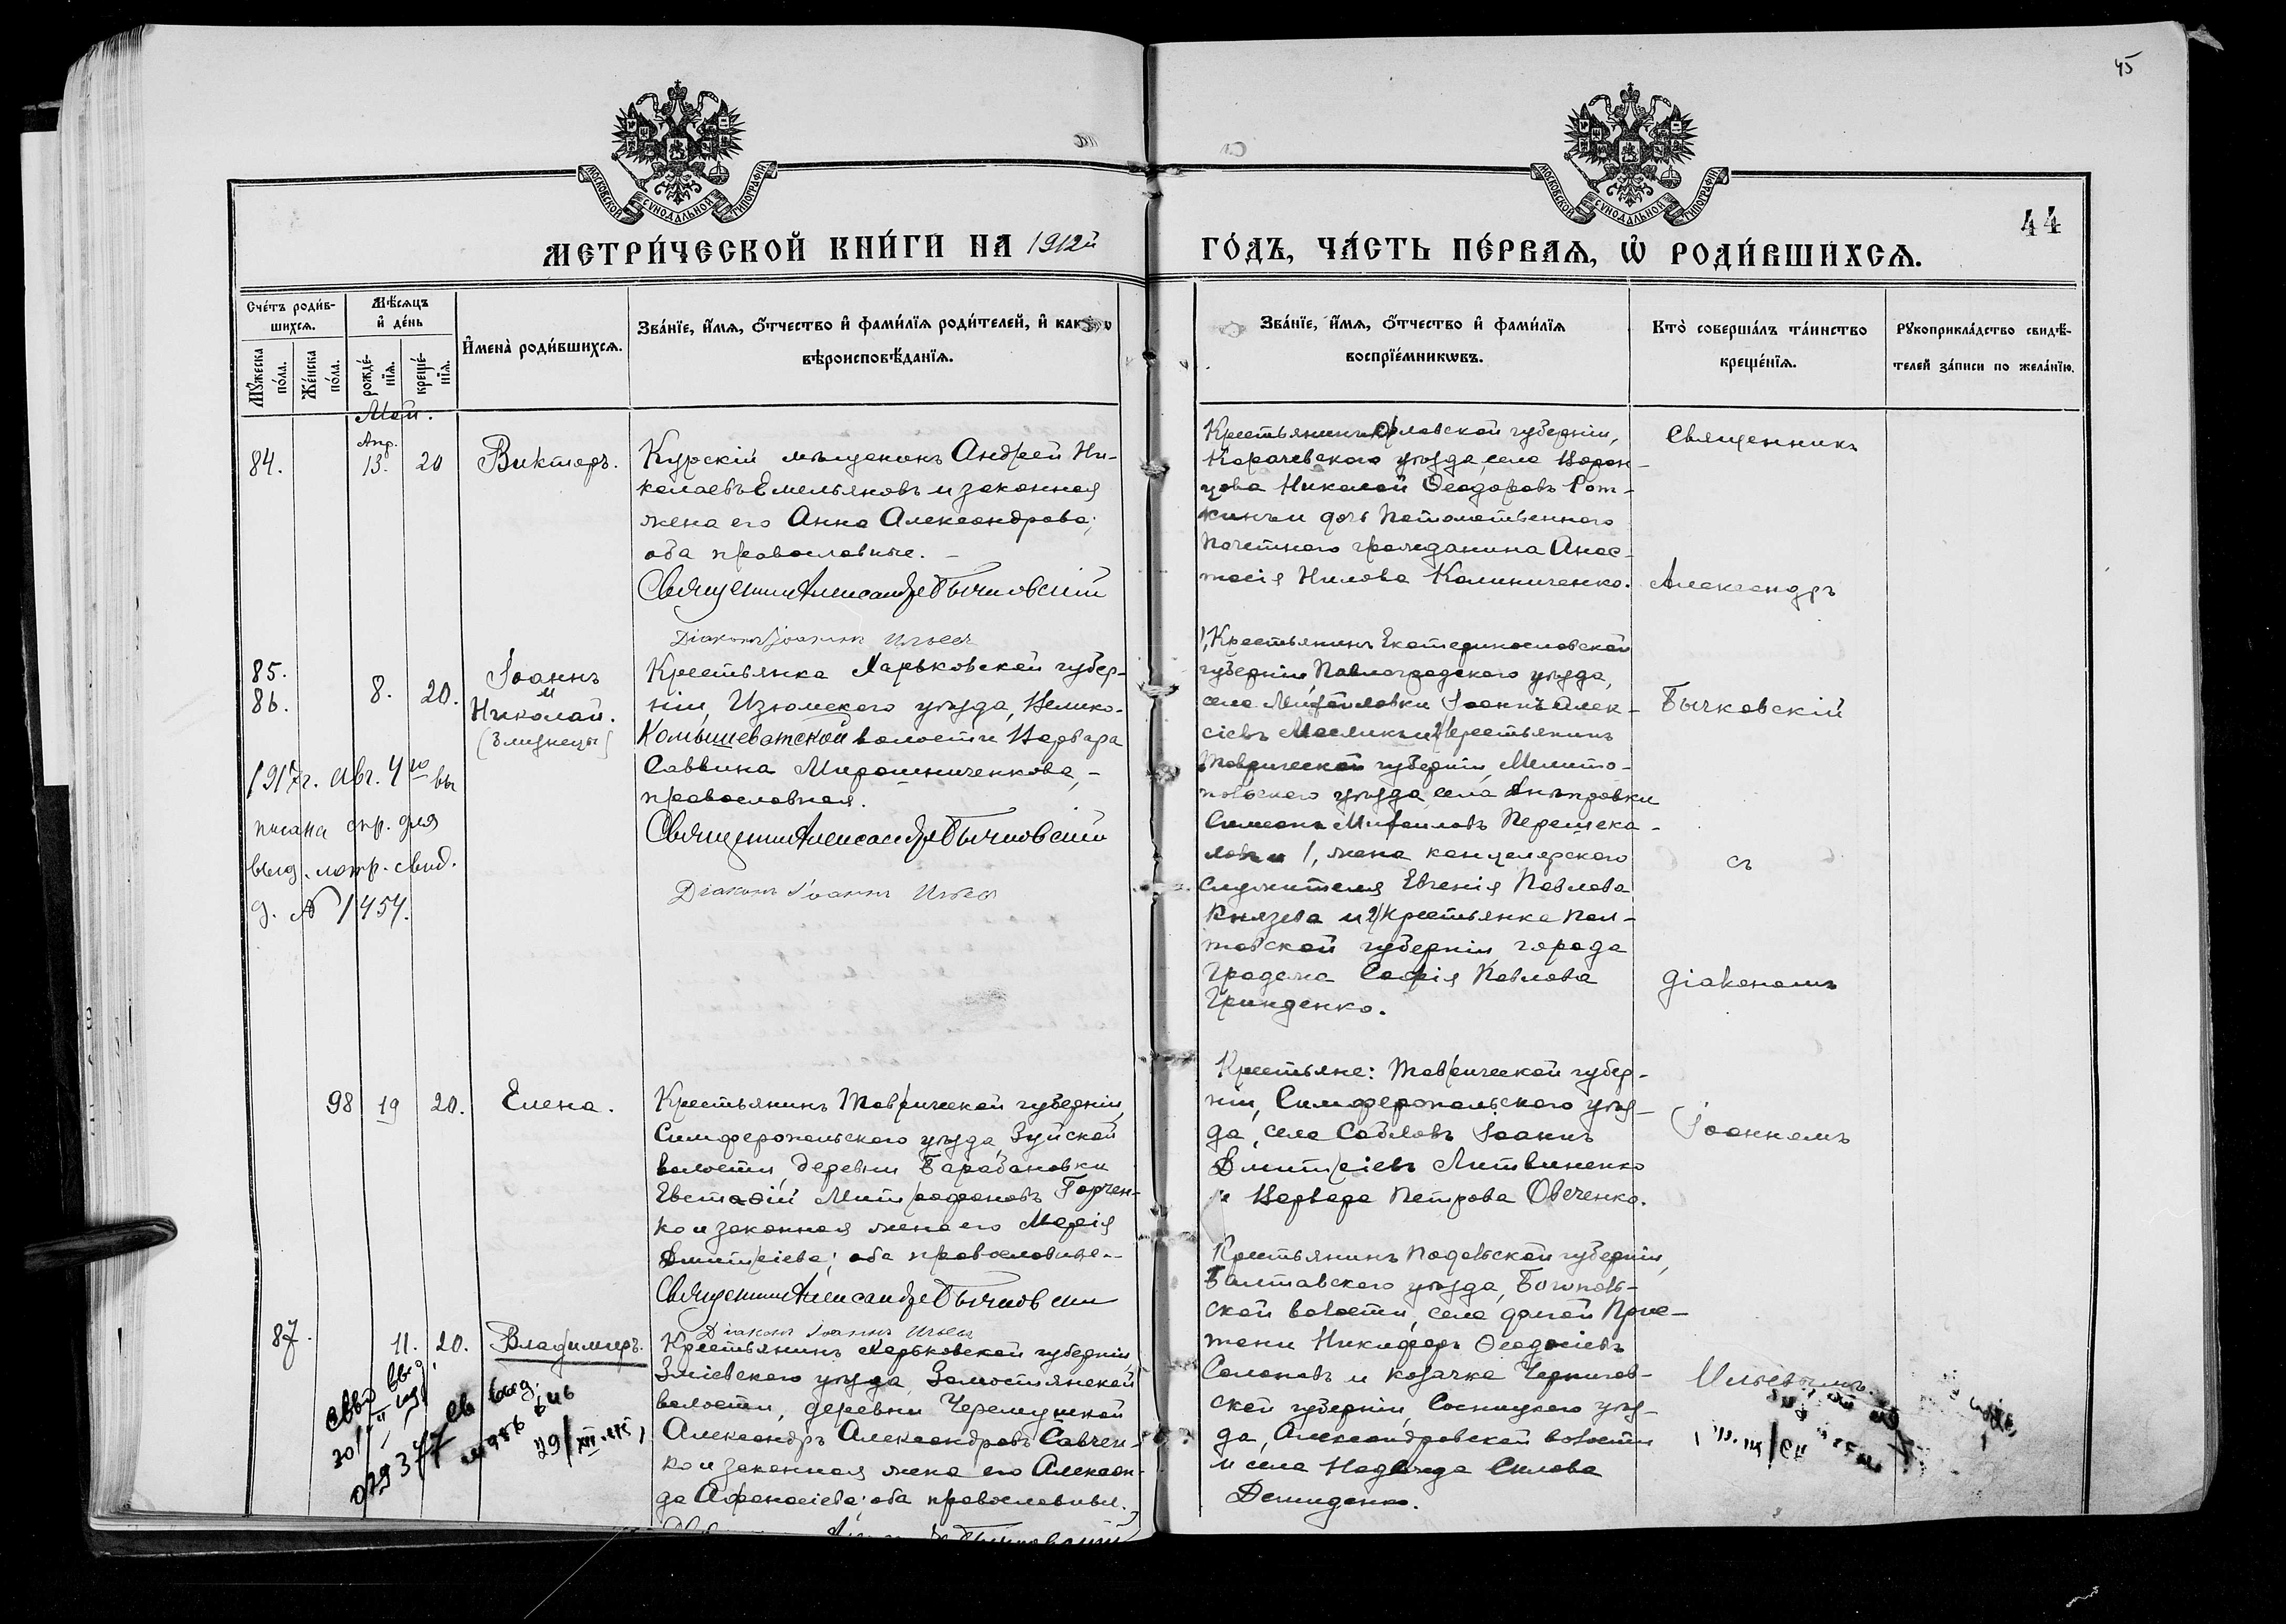 45
44
МОСКОВСКОЙ СѴНОДАЛЬНОЙ ТИПОГРАФІИ
МОСКОВСКОЙ СѴНОДАЛЬНОЙ ТИПОГРАФІИ
МЕТРИ́ЧЕСКОЙ КНИ́ГИ НА 1912й
ГО́ДЪ, ЧА́СТЬ ПЕ́РВАѦ, Ѡ҆ РОДИ́ВШИХСѦ.
Сче́тъ роди́в-
шихсѧ.
Мꙋ́жеска
по́ла.
Же́нска
по́ла.
Мѣ́сѧцъ
и҆ де́нь
рожде́-
нїѧ.
креще́-
нїѧ.
И҆мена̀ роди́вшихсѧ.
Зва́нїе, и҆́мѧ, ѻ҆́тчество и҆ фами́лїѧ роди́телей, и҆ како́гѡ
вѣроисповѣ́данїѧ.
Зва́нїе, и҆́мѧ, ѻ҆́тчество и҆ фами́лїѧ
воспрїе́мникѡвъ.
Кто̀ соверша́лъ та́инство
креще́нїѧ.
Рꙋкоприкла́дство свидѣ́-
телей за́писи по жела́нїю.
Май.
84.
Апр.
13.
20
Викторъ.
Курскій мѣщанинъ Андрей Ни-
колаевъ Емельяновъ и законная
жена его Анна Александрова;
оба православные. –
Священник Александр Бычковский
Діаконъ Іоаннъ Ильевъ
Крестьянинъ Орловской губерніи,
Карачевскаго уѣзда, села Ворон-
цова Николай Ѳеодоровъ Рот-
кинъ и дочь Потомственнаго
Почетнаго гражданина Анас-
тасія Нилова Калиниченко.
Священникъ
Александръ
85.
86.
8.
20.
Іоаннъ
и
Николай.
(Близнецы)
Крестьянка Харьковской губер-
ніи, Изюмскаго уѣзда, Велико-
Комышеватской волости Варвара
Саввина Мирошниченкова, –
православная.
Священник Александр Бычковский
Діаконъ Іоаннъ Ильевъ
1917г. Авг. 4го вы
писана спр. для
выд. метр. свид.
д. № 1454.
1, Крестьянинъ Екатеринославской
губерніи, Павлоградскаго уѣзда,
села Михайловки Іоаннъ Алек-
сіевъ Масликъ и 2/ крестьянинъ
Таврической губерніи, Мелито-
польскаго уѣзда, села Днѣпровки
Симеонъ Михаиловъ Перешека-
ловъ и 1, жена канцелярскаго
служителя Евгенія Павлова
Князева и 2/ крестьянка Пол-
тавской губерніи города
Градижа Софія Павлова
Гринденко.
Бычковскій
съ
діакономъ
98
19
20.
Елена.
Крестьянинъ Таврической губерніи,
Симферопольскаго уѣзда, Зуйской
волости, деревни Барабановки
Евстафій Митрофановъ Горчен-
ко и законная жена его Марія
Дмитріева; оба православные. –
Священник Александр Бычковский
Діаконъ Іоаннъ Ильевъ
Крестьяне: Таврической губер-
ніи, Симферопольскаго уѣз-
да, села Сабловъ Іоаннъ
Дмитріевъ Литвиненко
и Варвара Петрова Овченко.
Іоанномъ
87.
11.
20.
Владимиръ.
Крестьянинъ Харьковской губерніи
Зміевскаго уѣзда, Замостянской
волости, деревни Черемушной
Александръ Александровъ Савчен-
ко и законная жена его Алексан-
дра Афанасіева; оба православные.
Крестьянинъ Подольской губерніи,
Балтавскаго уѣзда, Богополь-
ской волости, села долгой При-
тани Никифоръ Ѳеодосіевъ
Соломовъ и козачка Чернигов-
ской губерніи, Сосницкаго уѣз-
да, Александровской волости
и села Надежда Силова
Демиденко.
Ильевымъ.
029377
29/XII